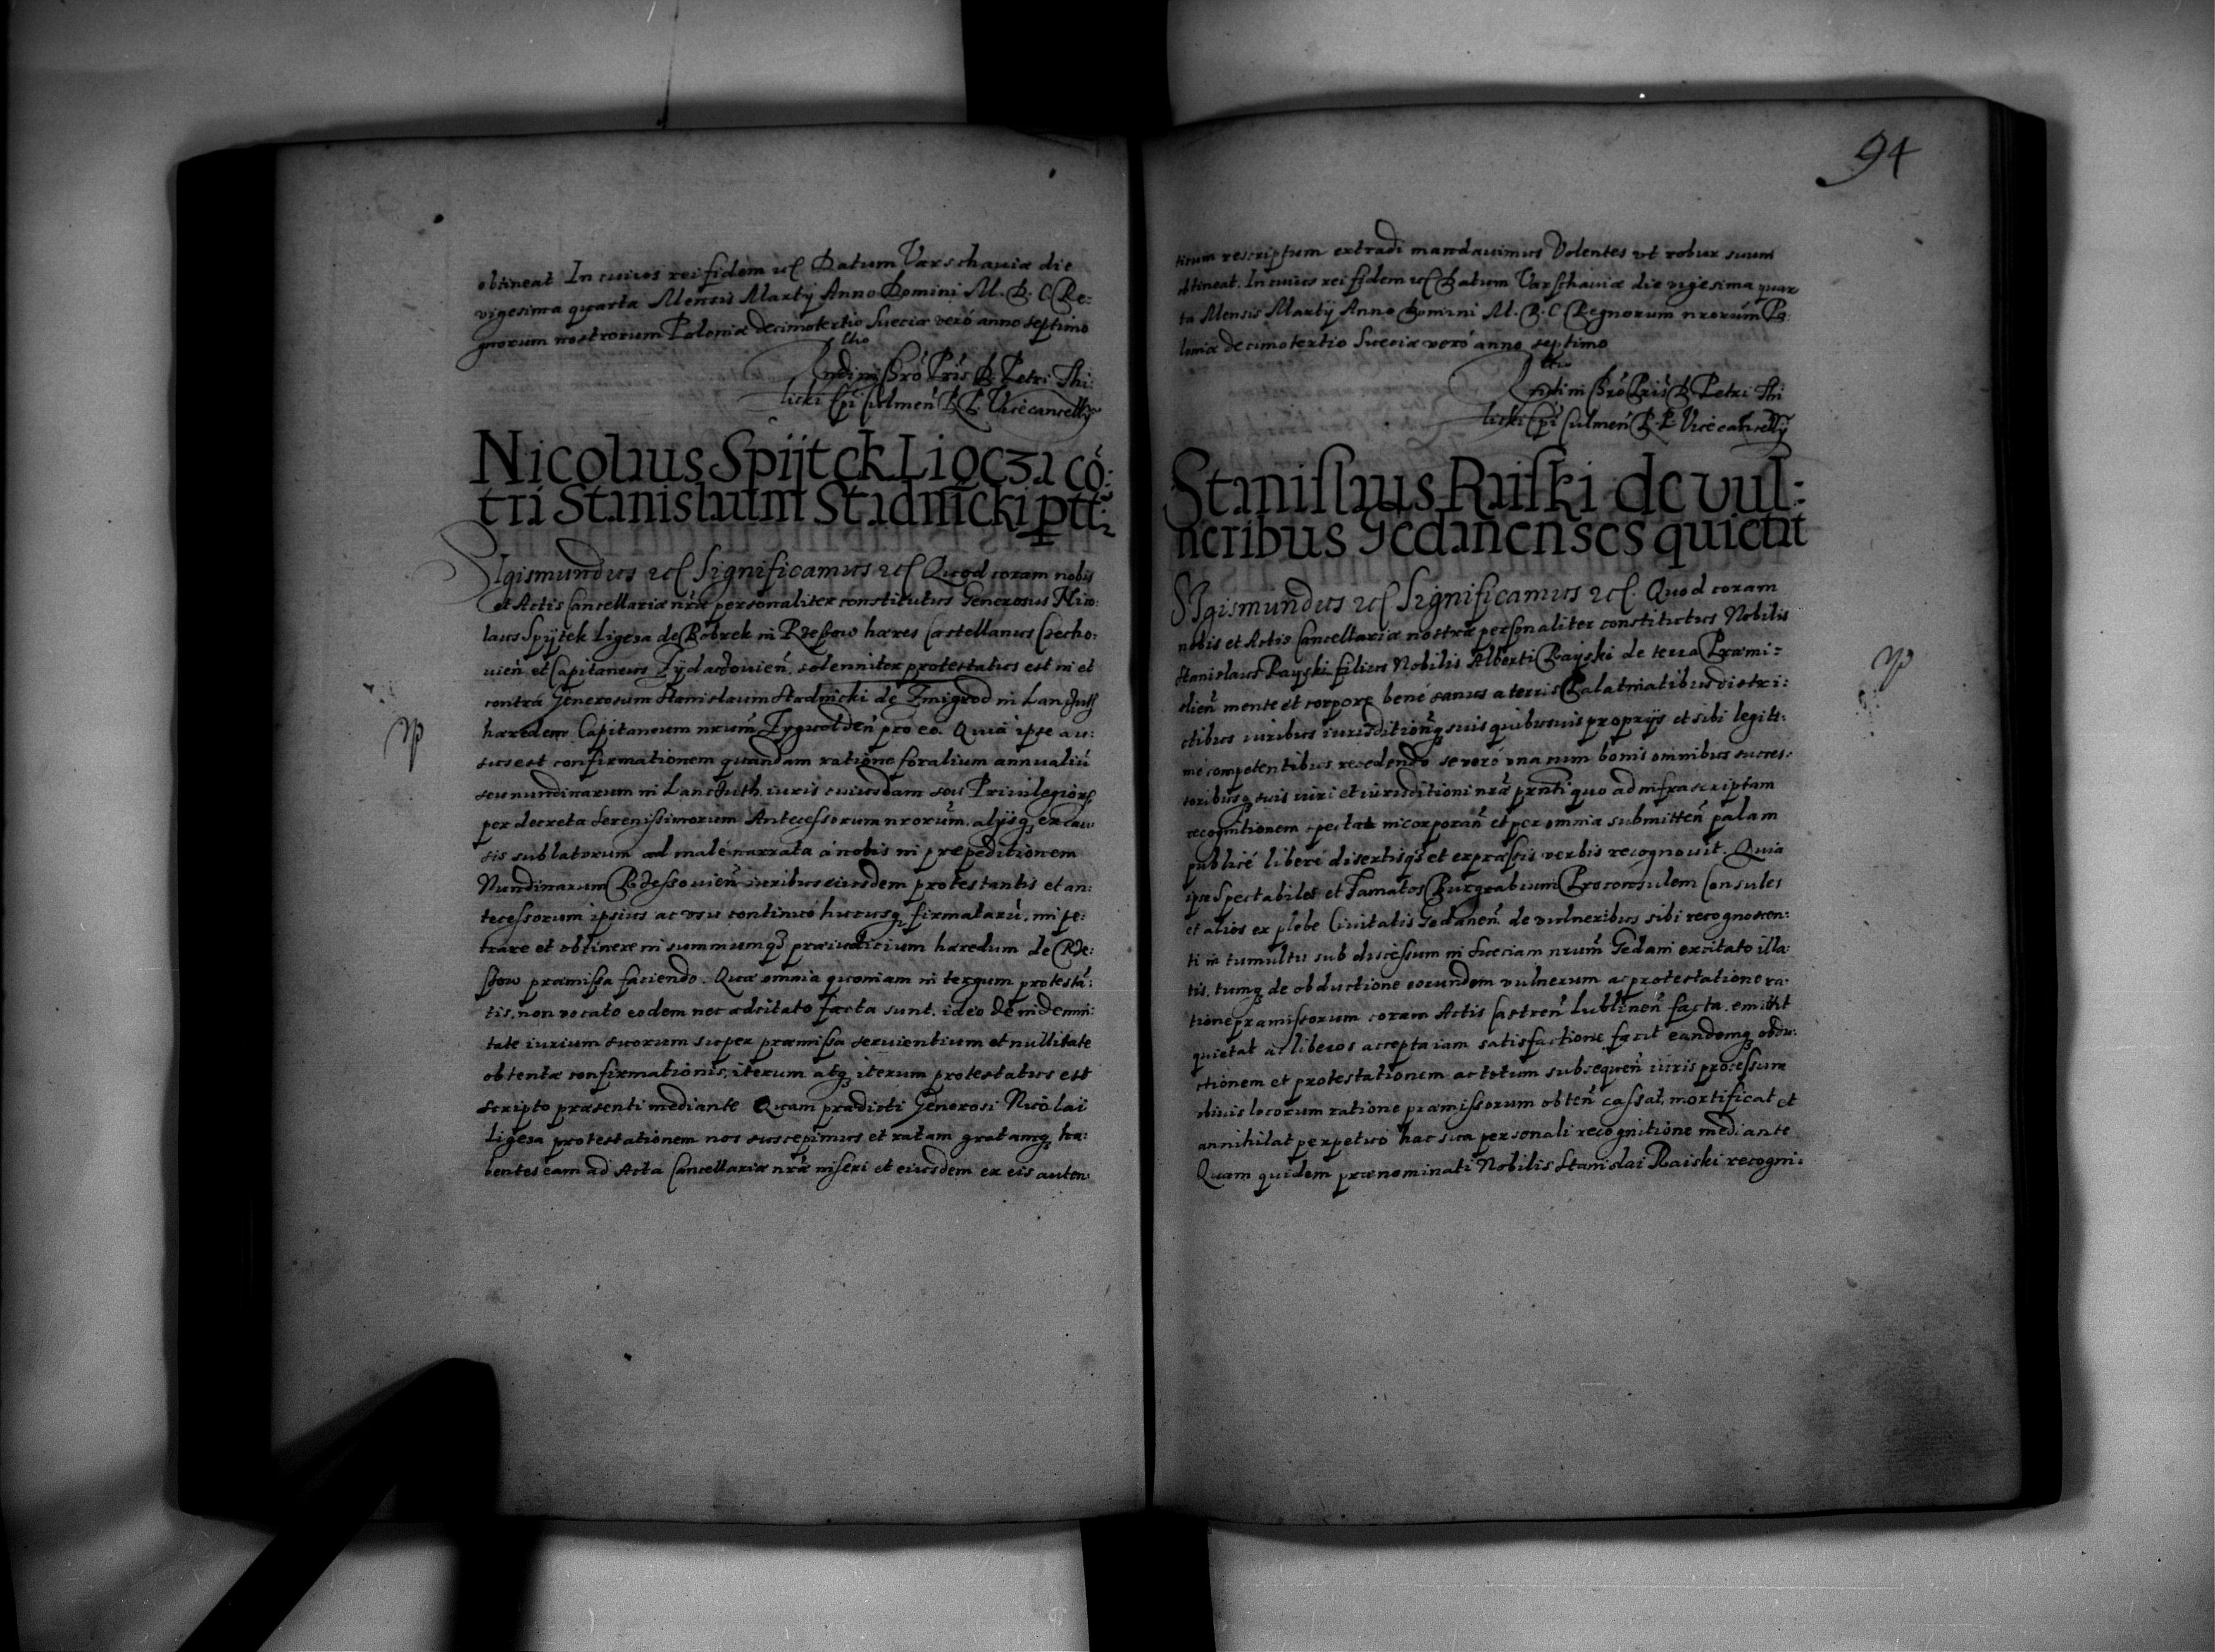 obtineat. In cuius rei fidem etc Datum Varschauiæ die
vigesima quarta Mensis Martij Anno Domini M. D. C. Re:
gnorum nostrorum Poloniæ decimotertio Sueciæ veró anno septimo
ltio
Rndi in Chró Pris D. Petri Thi:
licki Epi Culmeñ R. P. Vicecancelly
Nicolaus Spijtek Ligęza cō:
tra Stanislaum Stadnicki ptt:
Sigismundus etc Significamus etc Quod coram nobis
et Actis Cancellariæ nrǽ personaliter constitutus Generosus Nico:
laus Spÿtek Ligeza de Bobrek in Rzeßow hæres Castellanus Czecho:
uień et Capitaneus Zÿdaczouień, solenniter protestatus est in et
contrá Generosum Stanislaum Stadnicki de Zmigrod in Lanczuth
hæredem Capitaneum nrum̃ Zygwoldeñ pro eo. Quia ipse au:
sus est confirmationem quandam ratione foralium annualiū
seu nundinarum in Lanczuth iuris cuiusdam seu Priuilegiorū
per decreta Serenissimorum Antecessorum nrorum̃, alijsq ex cau
sis sublatorum ad malé narrata á nobis in præpeditionem
Nundinarum Rzessouień iuribus eiusdem protestantis et an:
tecessorum ipsius ac usu continuó hucusq firmatarū, impe:
trare et obtinere in summumq præiudicium hæredum de Rze:
ssow præmissa faciendo. Quæ omnia quoniam in tergum protestā:
tis, non vocato eodem nec adcitato facta sunt, ideo de indemni:
tate iurium suorum super præmissa seruientium et nullitate
obtentæ confirmationis, iterum atq iterum protestatus est
scripto præsenti mediante Quam prædicti Generosi Nicolai
Ligeza protestationem nos suscepimus et ratam gratamq ha:
bentes eam ad Acta Cancellariæ nrǽ inseri et eiusdem ex eis auten:
94
ticum rescriptum extradi mandauimus Volentes vt robur suum
obtineat. In cuius rei fidem etc Datum Varschauiæ die vigesima quar
ta Mensis Martij Anno Domini M. D. C. Regnorum nrorum̃ Po:
loniæ decimotertio Sueciæ veró anno septimo
ltio
Rndi in Chró Pris D. Petri Thi
licki Epi Culmeñ R. P. Vicecancelly
Stanislaus Raiski de vul:
neribus Gedanenses quietat
Sigismundus etc Significamus etc. Quod coram
nobis et Actis Cancellariæ nostræ personaliter constitutus Nobilis
Stanislaus Rayski filius Nobilis Alberti Rayski de terra Præmi:
slień mente et corpore bené sanus a terris Palatinatibus distri:
ctibus iuribus iurisditioñq suis quibusuis proprijs et sibi legiti:
mé competentibus recedendo se veró una cum bonis omnibus succes:
soribusq suis iuri et iurisditioni nrǽ prñti quo ad infrascriptam
recognitionem spectat incorporañ et per omnia submitteñ palam
publicé liberé disertisq et expressis verbis recognouit. Quia
ipse Spectabiles et Famatos Burgrabium Proconsulem Consules
et alios ex plebe Ciuitatis Gedaneñ de vulneribus sibi recognoscen:
ti in tumultu sub discessum in Sueciam nrum̃ Gedani excitato illa:
tis, tumq de obductione eorundem vulnerum ac protestatione ra:
tione præmissorum coram Actis Castreñ Lublineñ facta, emittit
quietat ac liberos accepta iam satisfactione facit eandemq obdu:
ctionem et protestationem ac totum subsequeñ iuris processum
vbiuis locorum ratione præmissorum obteñ cassat, mortificat et
annihilat perpetuó hac sua personali recognitione mediante
Quam quidem prænominati Nobilis Stanislai Raiski recogni: